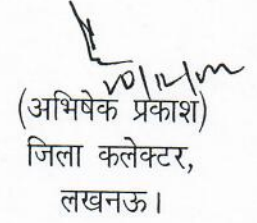 (अभिषेक प्रकाश)
जिला कलेक्टर,
लखनऊ।